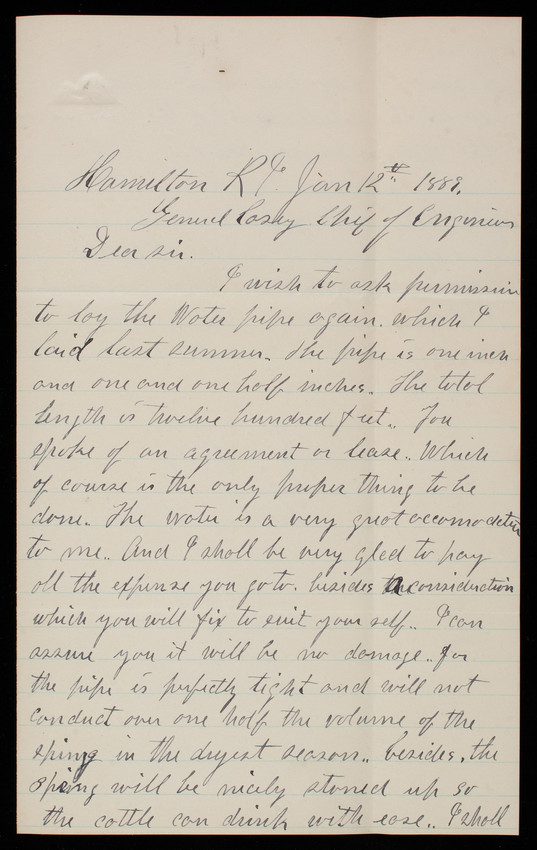 Hamilton R I. Jan 12th 1889.
General Casey Chif of Engineers
Dear sir.
I wish to ask permission
to lay the Water pipe again. which I
laid last summer. The pipe is one inch
and one and one half inches.. The total
length is twelve hundred feet.. You
spoke of an agreement or lease.. Which
of course is the only proper thing to be
done. The water is a very great accomodation
to me.. And I shall be very glad to pay
all the expense you go to. besides the consideration
which you will fix to suit your self.. I can
assure you it will be no damage.. for
the pipe is perfectly tight and will not
conduct over one half the volume of the
spring in the dryest season.. besides, the
spring will be nicely stoned up so
the cattle can drink with ease.. I shall